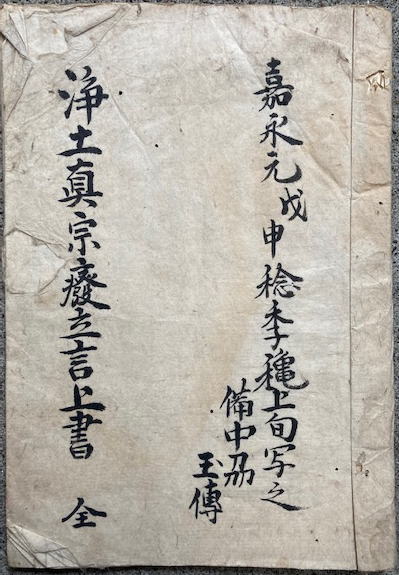 嘉永元戊申稔季穐上旬写之
備中刕
玉傳
浄土真宗癈立言上書 全